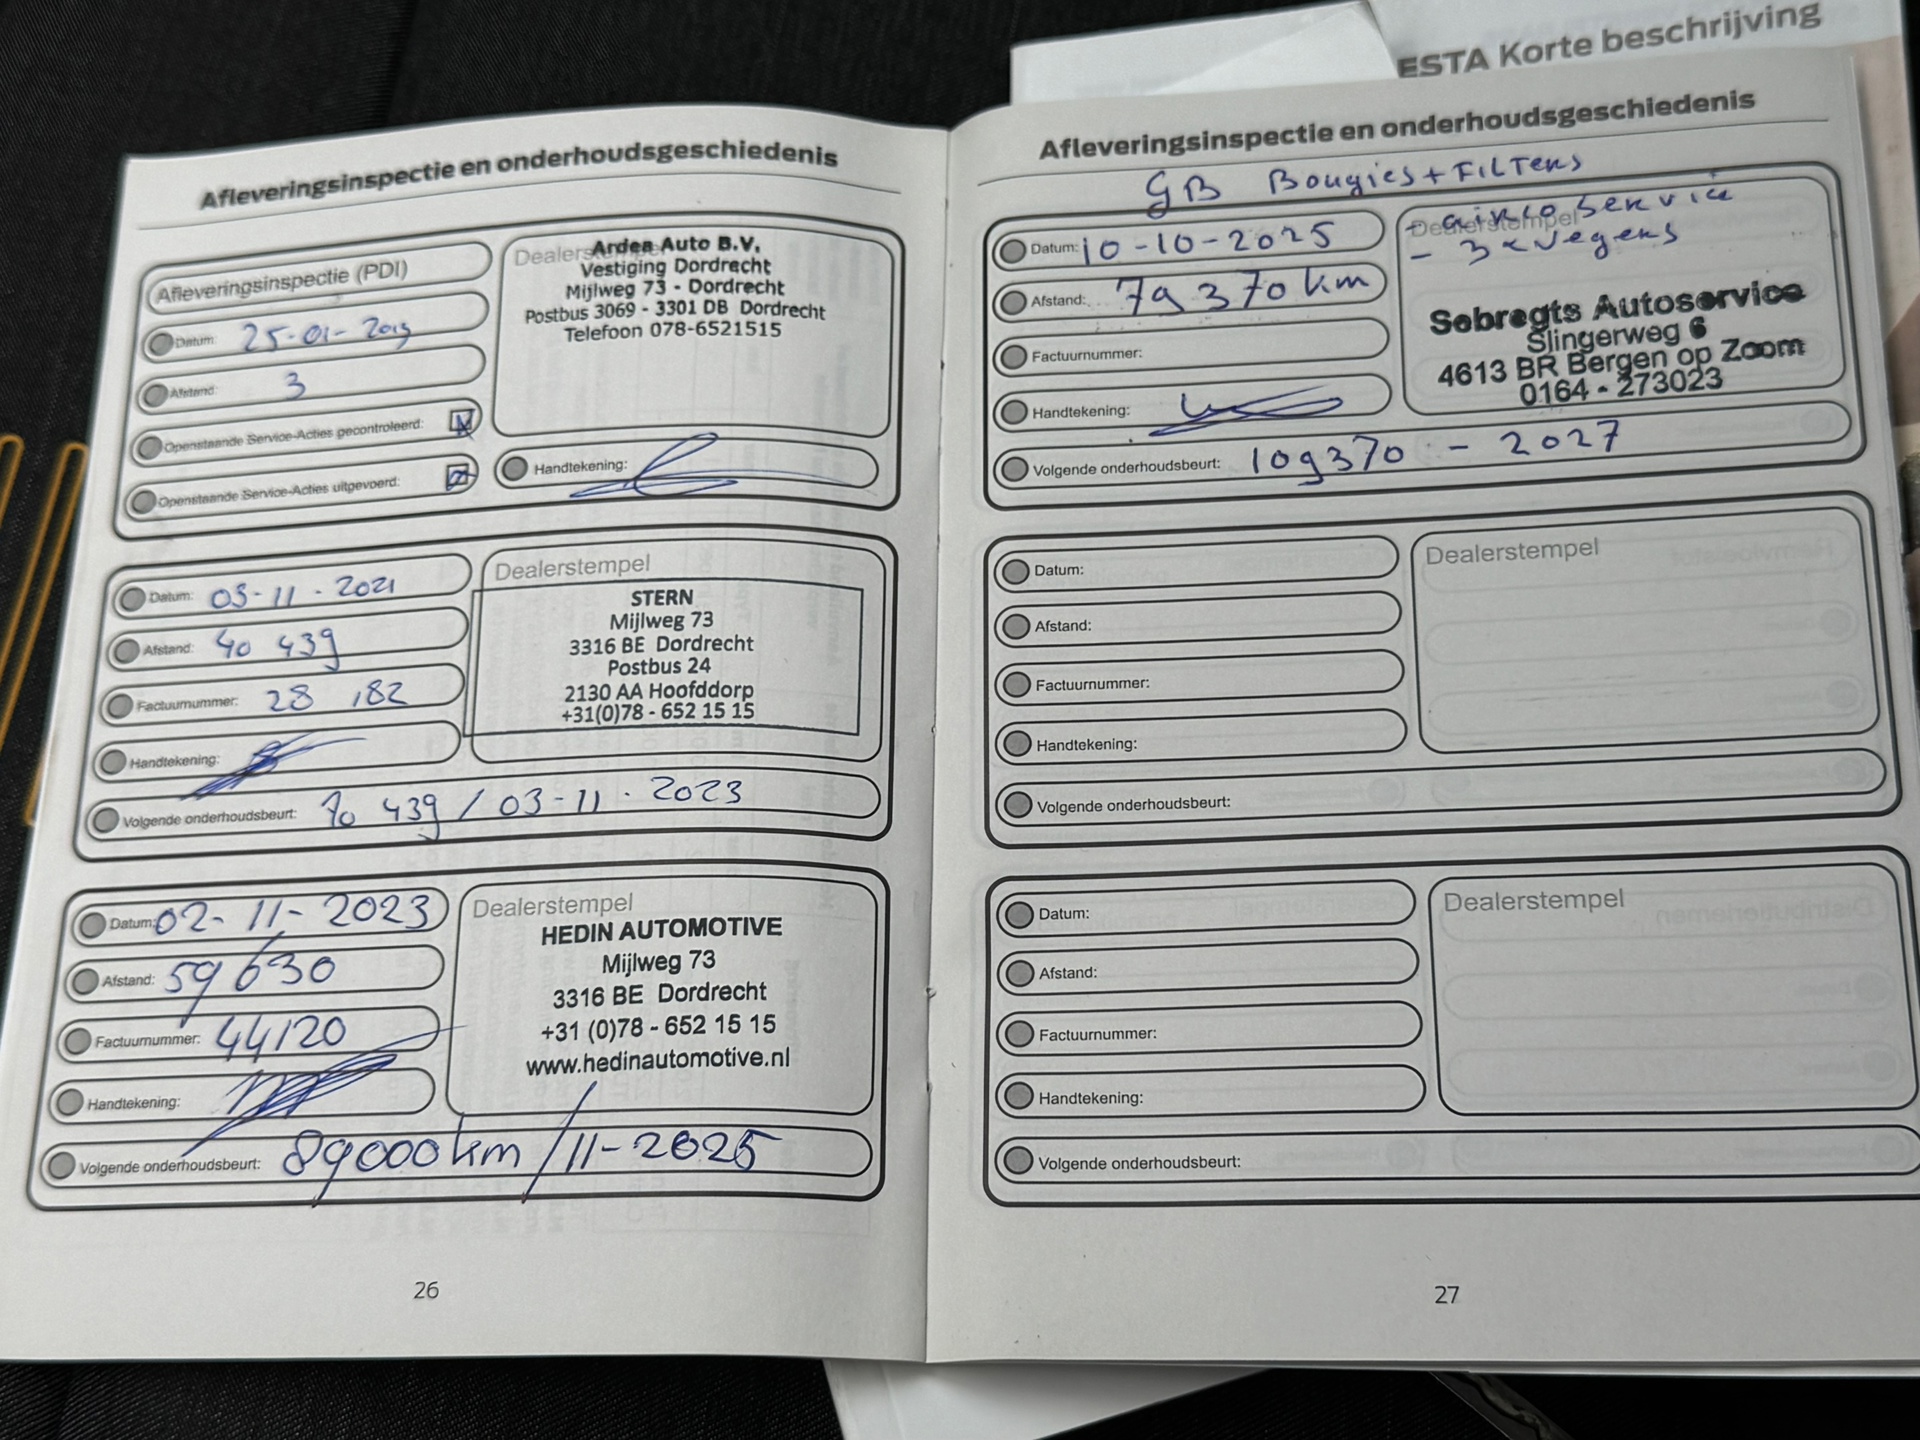 ESTA Korte beschrijving
Afleveringsinspectie en onderhoudsgeschiedenis
Afleveringsinspectie (PDI)
Datum: 25-01-2019
Afstand: 3
Openstaande Service-Acties gecontroleerd:
Openstaande Service-Acties uitgevoerd:
Dealerstempel
Ardea Auto B.V.
Vestiging Dordrecht
Mijlweg 73 - Dordrecht
Postbus 3069 - 3301 DB Dordrecht
Telefoon 078-6521515
Handtekening:
Datum: 03-11-2021
Afstand: 40 439
Factuurnummer: 28 182
Handtekening:
Volgende onderhoudsbeurt: 70 439 / 03-11-2023
Dealerstempel
STERN
Mijlweg 73
3316 BE Dordrecht
Postbus 24
2130 AA Hoofddorp
+31(0)78 - 652 15 15
Datum: 02-11-2023
Afstand: 59630
Factuurnummer: 44120
Handtekening:
Volgende onderhoudsbeurt: 89000km / 11-2025
Dealerstempel
HEDIN AUTOMOTIVE
Mijlweg 73
3316 BE Dordrecht
+31 (0)78 - 652 15 15
www.hedinautomotive.nl
26
Afleveringsinspectie en onderhoudsgeschiedenis
GB Bougies + FILTERS
Datum: 10-10-2025
Afstand: 79370 km
Factuurnummer:
Handtekening:
Volgende onderhoudsbeurt: 109370 - 2027
Dealerstempel
- airco service
- 3x wegens
Sebregts Autoservice
Slingerweg 6
4613 BR Bergen op Zoom
0164 - 273023
Datum:
Afstand:
Factuurnummer:
Handtekening:
Volgende onderhoudsbeurt:
Dealerstempel
Datum:
Afstand:
Factuurnummer:
Handtekening:
Volgende onderhoudsbeurt:
Dealerstempel
27